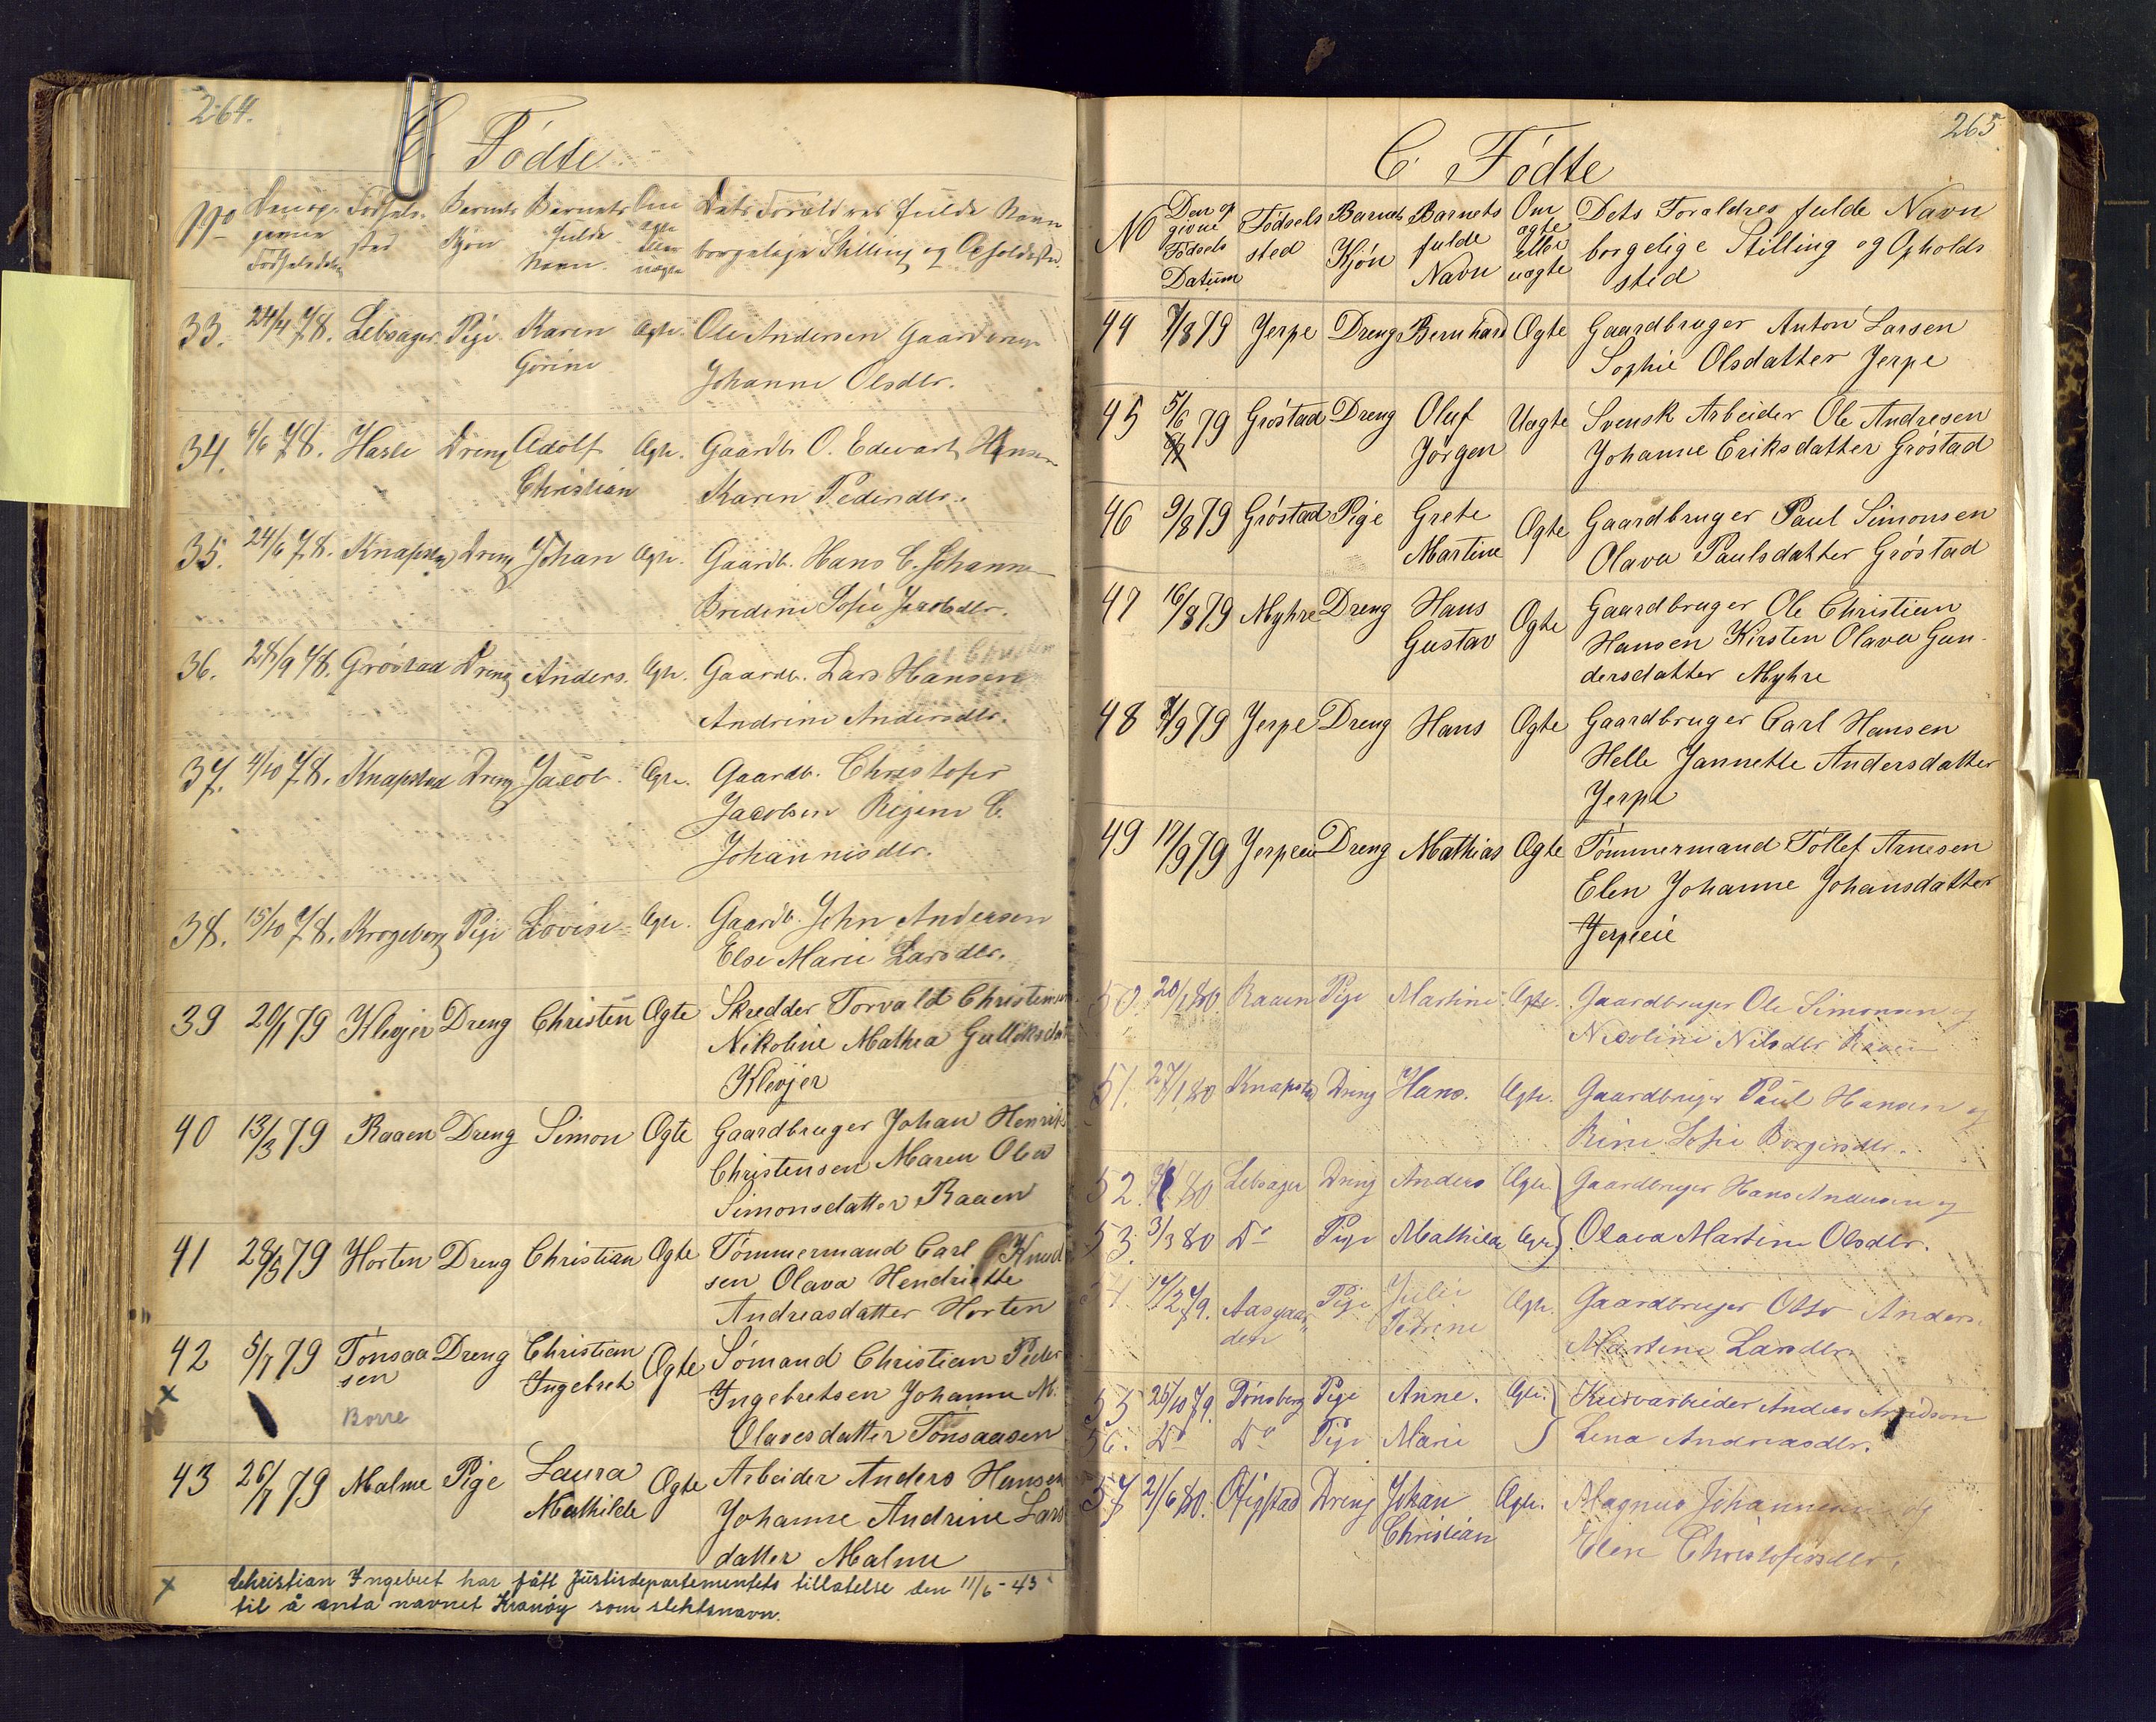 264.
C. Födte
No Den op- Födsels- Barnets Barnets Om Dets Forældres fulde Navn
givne sted Kjön fulde ægte borgerlige Stilling og Opholdssted.
Födselsdato Navn. eller uægte
33. 24/4 78. Lebsager Pige Karen Ægte. Ole Andersen Gaardbruger
Gorine Johanne Olsdtr.
34. 6/6 78. Hasle Dreng Adolf Ægte. Gaardb. O. Edevart Hansen
Christian Karen Pedersdtr.
35. 24/6 78. Knapstad Dreng Johan Ægte. Gaardb. Hans C. Johann
Bredine Sofie Jacobsdtr.
36. 28/9 78. Gröstad Dreng Anders. Ægte. Gaardb. Lars Hansen
Andrine Andersdtr.
37. 4/10 78. Knapstad Dreng Jacob. Ægte. Gaardb. Christofer
Jacobsen Regine C.
Johannisdtr.
38. 15/10 78. Krogeborg Pige Lovise Ægte. Gaardb. John Andersen
Else Marie Larsdtr.
39 20/1 79 Klevjer Dreng Christen Ögte Skredder Torvald Christensen
Nikoline Mathea Gulliksdat
Klevjer
40 13/3 79 Raaen Dreng Simon Ögte Gaardbruger Johan Henrik
Christensen Maren Olea
Simonsdatter Raaen
41 28/5 79 Horten Dreng Christian Ögte Tömmermand Carl Knud
sen Olava Hendriette
Andreasdatter Horten
42 5/7 79 Tonsaa Dreng Christian Ögte Sömand Christian Peder
x sen Ingebret Ingebretsen Johanne M.
Borre Olavesdatter Tonsaasen
43 26/7 79 Malme Pige Laura Ögte Arbeider Anders Hansen
Mathilde Johanne Andrine Lars
datter Malme
x Christian Ingebret har fått Justisdepartementets tillatelse den 11/6-43
til å anta navnet Kranöy som slektsnavn.
265
C. Födte
No Den op Födsels Barnets Barnets Om Dets Foraldres fulde Navn
givne sted Kjön fulde ögte borgelige Stilling og Opholds
Födsels Navn eller sted
Datum uögte
44 7/8 79 Jerpe Dreng Bernhard Ogte Gaardbruger Anton Larsen
Sophie Olsdatter Jerpe
45 5/6 79 Gröstad Dreng Oluf Uogte Svensk Arbeider Ole Andresen
Jörgen Johanne Eriksdatter Gröstad
46 9/8 79 Gröstad Pige Grete Ogte Gaardbruger Paul Simonsen
Martine Olava Paulsdatter Gröstad
47 16/8 79 Myhre Dreng Hans Ogte Gaardbruger Ole Christian
Gustav Hansen Kirsten Olava Gun-
dersdatter Myhre
48 7/9 79 Jerpe Dreng Hans Ogte Gaardbruger Carl Hansen
Helle Jannette Andersdatter
Jerpe
49 17/9 79 Jerpeeie Dreng Mathias Ogte Tömmermand Tollef Arnesen
Elen Johanne Johansdatter
Jerpeeie
50. 20/1 80. Raaen Pige Martine Ægte. Gaardbruger Ole Simonsen og
Nicoline Nilsdtr Raaen
51. 27/1 80 Knapstad Dreng Hans. Ægte. Gaardbruger Paul Hansen og
Rine Sofie Borgersdtr.
52. 80 Lebsager Dreng Anders Ægte } Gaardbruger Hans Andersen og
53. 3/3 80 Do Pige Mathilde Ægte } Olava Martine Olsdtr.
54. 17/2 79. Aasgaar Pige Julie Ægte. Gaardbruger Otto Anders.
den Petrine Martine Larsdtr.
55 25/10 79. Tönsberg Pige Anne. Ægte } Kurvarbeider Anders
56. Do Do Pige Marie } Lena Andreasdtr.
57 21/6 80. Ofigstad Dreng Johan Ægte. Magnus Johannesen og
Christian Eline Christofersdtr.